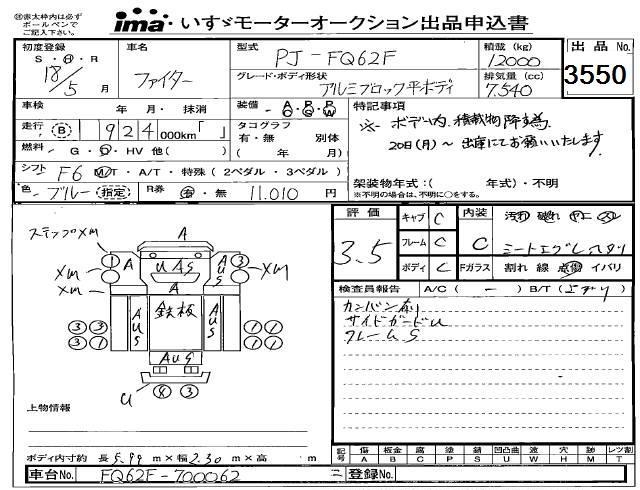 ㊟赤太枠内は必ず
ボールペンで
ご記入下さい。
ima いすゞモーターオークション出品申込書
初度登録
S・Ⓗ・R
18/5 月
車名
ファイター
型式
PJ-FQ62F
グレード・ボディ形状
アルミブロック平ボディ
積載 (kg)
12000
排気量 (cc)
7,540
出品 No.
3550
車検 年 月・抹消
走行 (B) 924000km「 」
燃料 G・D・HV 他( )
シフト F6 M/T・A/T・特殊 (2ペダル・3ペダル)
色 ブルー (指定) R券 有・無 11,010 円
装備 A/C P/S P/W
タコグラフ
有・無 別体
( 年 月)
特記事項
※ ボディ内、積載物降ろし
20日(月)～ 出庫にてお願いいたします。
架装物年式:( 年式)・不明
(年式不明の場合は、不明に○をする。)
評価
3.5
キャブ C
フレーム C
ボディ C
内装
C
Fガラス 割れ 線 点傷 イバリ
検査員報告 A/C ( ー ) B/T ( )
カンバン剤
サイドガードU
フレームS
ステップXM
A
③
XM
XM
U A S
A
鉄板
A U S
③ ③
① ①
U
④ ③
上物情報
ボディ内寸約 長 5.99 m×幅 2.30 m×高 m
記号 傷A 板金B 腐C 塗P 錆S 凹凸曲U 波W 穴H 跡M レツ割T
車台No. FQ62F-700062
登録No.